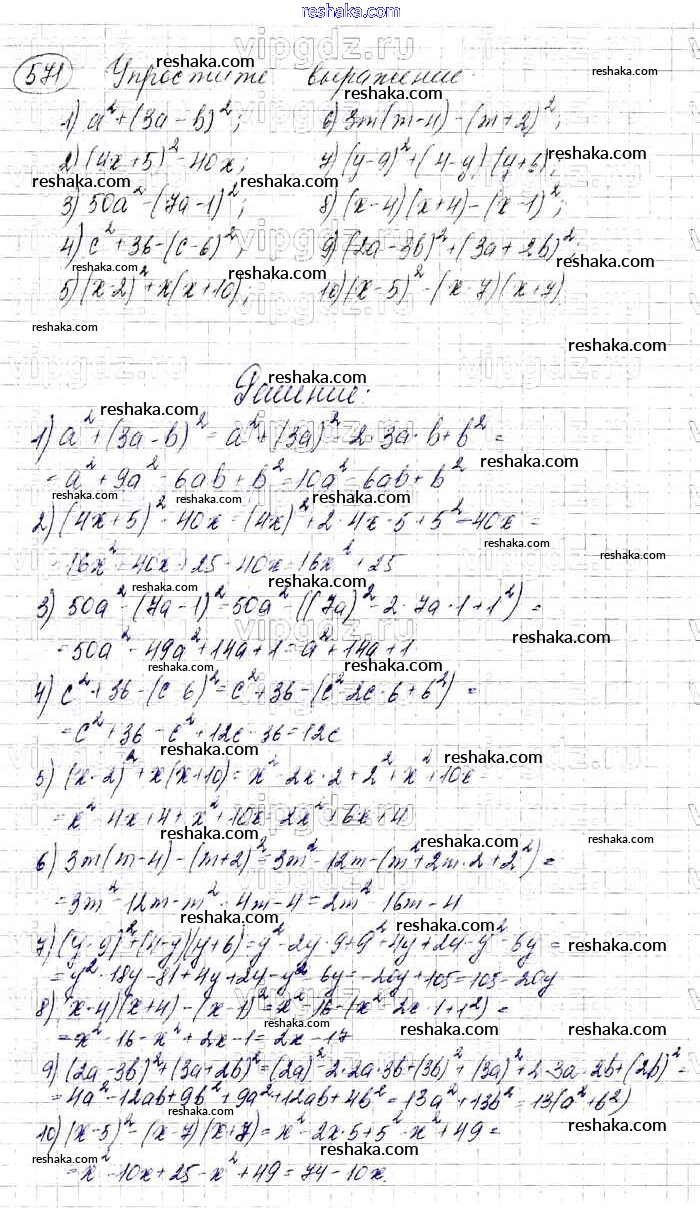 reshaka.com
571 Упростите выражение.
1) a² + (3a - b)²; 6) 3m(m-4) - (m+2)²;
2) (4x+5)² - 40x; 7) (y-9)² + (4-y)(y+6);
3) 50a² - (7a-1)²; 8) (x-4)(x+4) - (x-1)²;
4) c² + 36 - (c-6)²; 9) (2a-3b)² + (3a+2b)²;
5) (x-2)² + x(x+10); 10) (x-5)² - (x-7)(x+7)
Решение:
1) a² + (3a-b)² = a² + (3a)² - 2·3a·b + b² =
= a² + 9a² - 6ab + b² = 10a² - 6ab + b²
2) (4x+5)² - 40x = (4x)² + 2·4x·5 + 5² - 40x =
= 16x² + 40x + 25 - 40x = 16x² + 25
3) 50a² - (7a-1)² = 50a² - ((7a)² - 2·7a·1 + 1²) =
= 50a² - 49a² + 14a + 1 = a² + 14a + 1
4) c² + 36 - (c-6)² = c² + 36 - (c² - 2c·6 + 6²) =
= c² + 36 - c² + 12c - 36 = 12c
5) (x-2)² + x(x+10) = x² - 2x·2 + 2² + x² + 10x =
= x² - 4x + 4 + x² + 10x = 2x² + 6x + 4
6) 3m(m-4) - (m+2)² = 3m² - 12m - (m² + 2m·2 + 2²) =
= 3m² - 12m - m² - 4m - 4 = 2m² - 16m - 4
7) (y-9)² + (4-y)(y+6) = y² - 2y·9 + 9² + 4y + 24 - y² - 6y =
= y² - 18y - 81 + 4y + 24 - y² - 6y = -20y + 105 = 105 - 20y
8) (x-4)(x+4) - (x-1)² = x² - 16 - (x² - 2x·1 + 1²) =
= x² - 16 - x² + 2x - 1 = 2x - 17
9) (2a-3b)² + (3a+2b)² = (2a)² - 2·2a·3b + (3b)² + (3a)² + 2·3a·2b + (2b)² =
= 4a² - 12ab + 9b² + 9a² + 12ab + 4b² = 13a² + 13b² = 13(a² + b²)
10) (x-5)² - (x-7)(x+7) = x² - 2x·5 + 5² - x² + 49 =
= x² - 10x + 25 - x² + 49 = 74 - 10x.